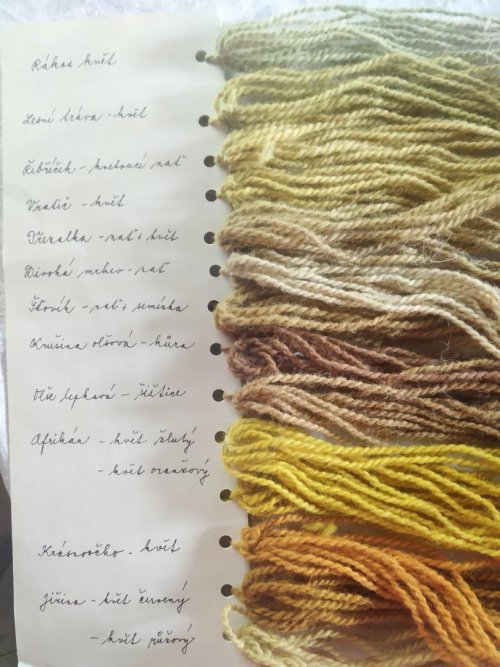 Rákos květ
Lesní tráva - květ
Řebříček - kvetoucí nať
Vratič - květ
Třezalka - nať + květ
Divoká mrkev - nať
Šťovík - nať + semínka
Krušina olšová - kůra
Olše lepkavá - šištice
Afrikán - květ žlutý
- květ oranžový
Krásnoočko - květ
Jiřina - květ červený
- květ růžový